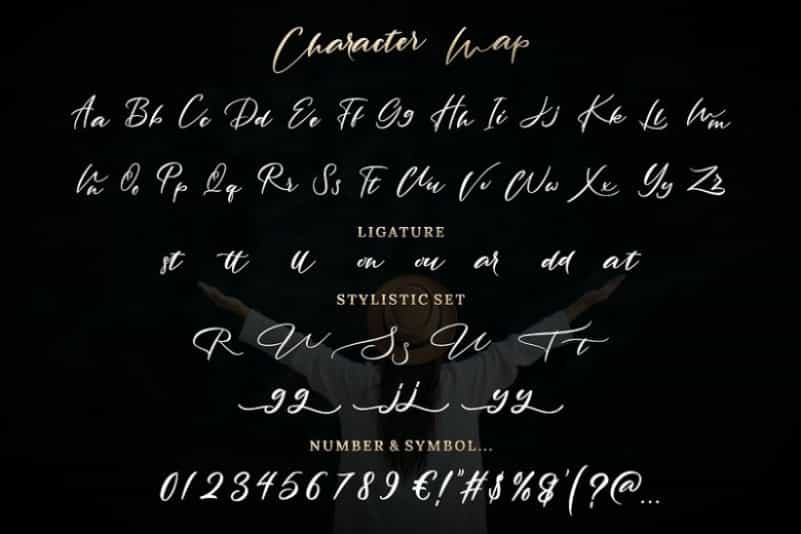 Character Map
Aa Bb Cc Dd Ee Ff Gg Hh Ii Jj Kk Ll Mm
Nn Oo Pp Qq Rr Ss Tt Uu Vv Ww Xx Yy Zz
LIGATURE
st tt ll on ou ar dd at
STYLISTIC SET
R W Ss U Tt
gg jj yy
NUMBER & SYMBOL...
0123456789 €!"#$%&'(?@...